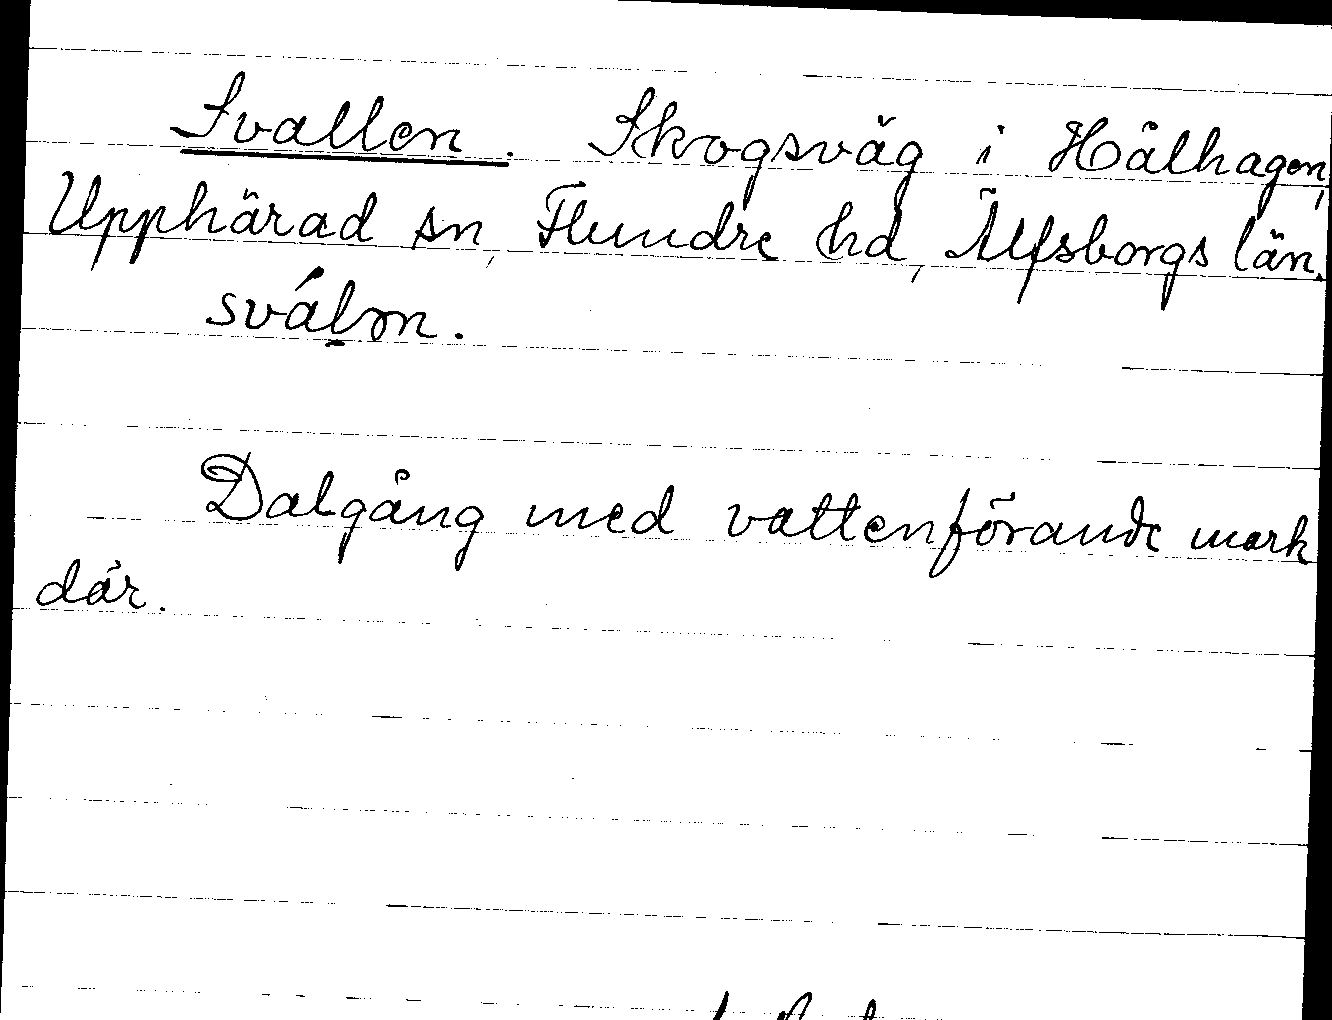 Svallen. Skogsväg i Hålhagen,
Upphärad sn, Flundre hd, Älfsborgs län.
sválon.
Dalgång med vattenförande mark
där.